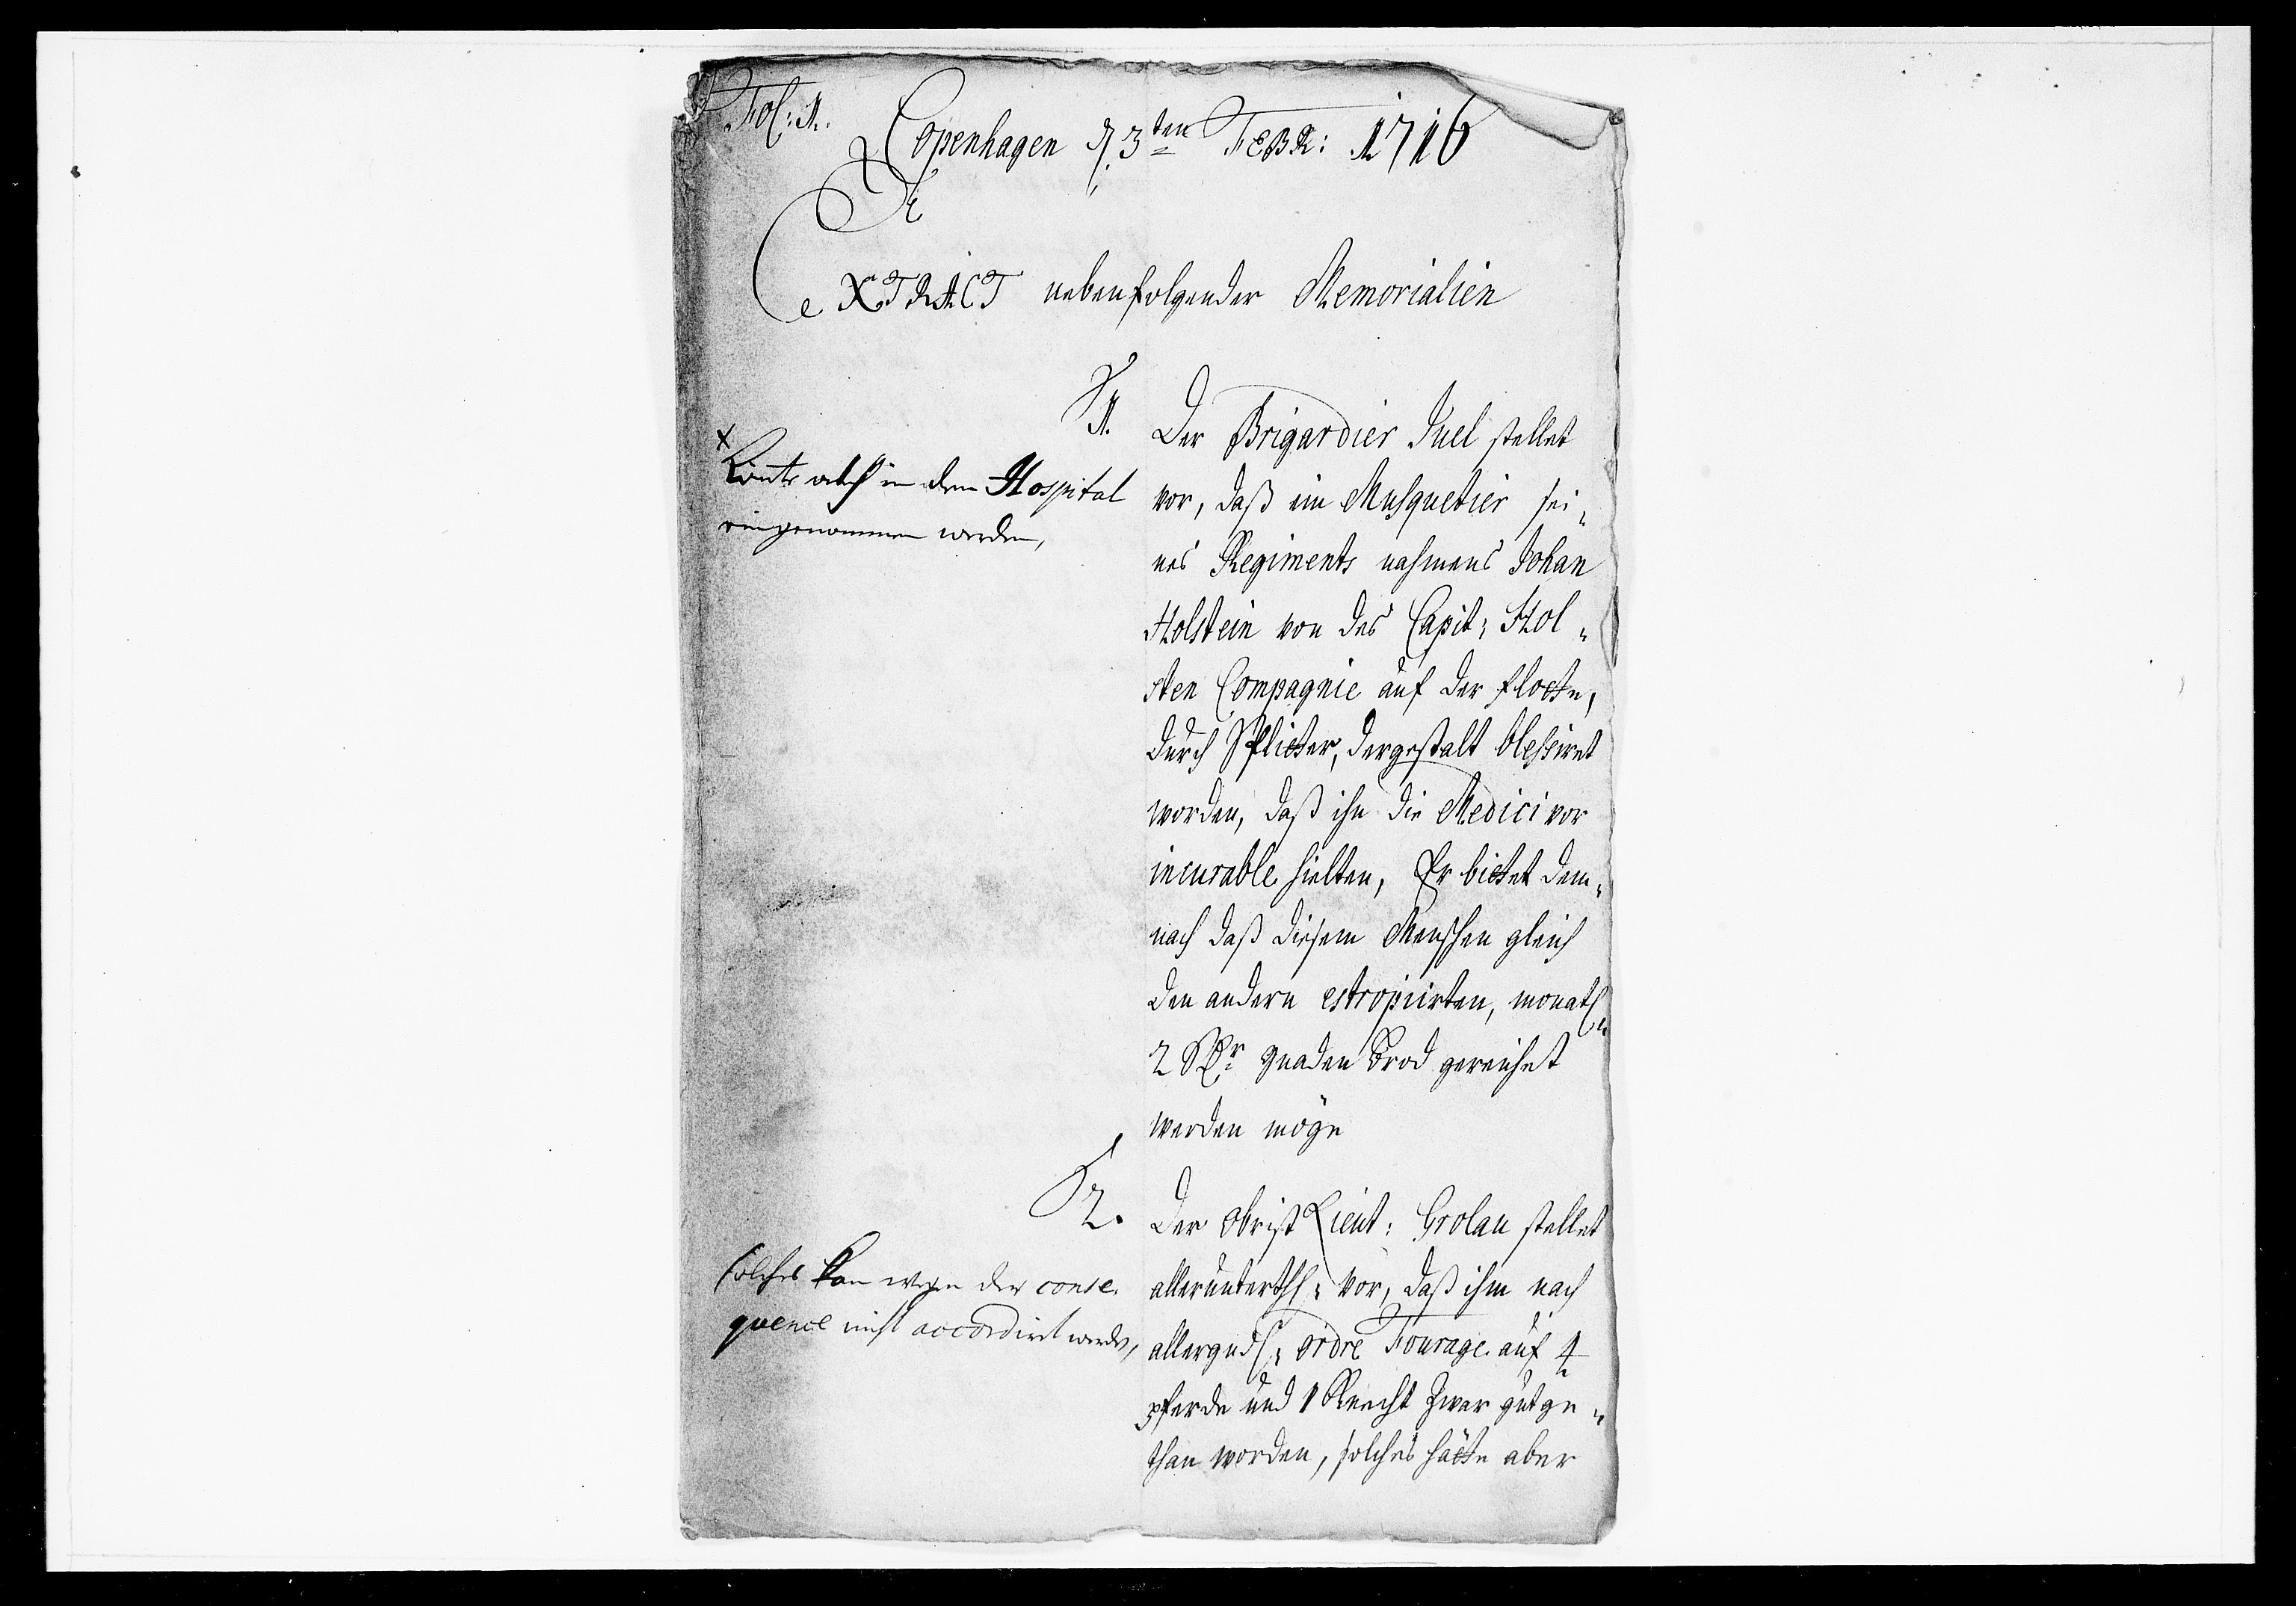 Fol: 1.
Copenhagen d 3ten FEBR: 1716
EXTRACT nebenfolgender Memorialien
1.
Der Brigardier Juel stellet
vor, daß ein Musquetier sei-
nes Regiments nahmens Johan
Holstein von des Capit: Hol-
sten Compagnie auf der flotte,
durch Splitter, dergestalt blessiret
worden, daß ihn die Medici vor
incurable hielten, Er bittet dem-
nach daß diesem Menschen gleich
den andern estropiirten, monatl:
2 Rdr gnaden Brod gereichet
werden möge
x
Könte in dem Hospital
eingenommen werden,
2.
Der Obrist Lieut: Grolau stellet
allerunterth: vor, daß ihm nach
allergndl: ordre Fourage auf 4
pferde und 1 Knecht zwar gut ge-
than worden, solches hätte aber
solches kan wegen der conse-
quence nicht accordiret werden,